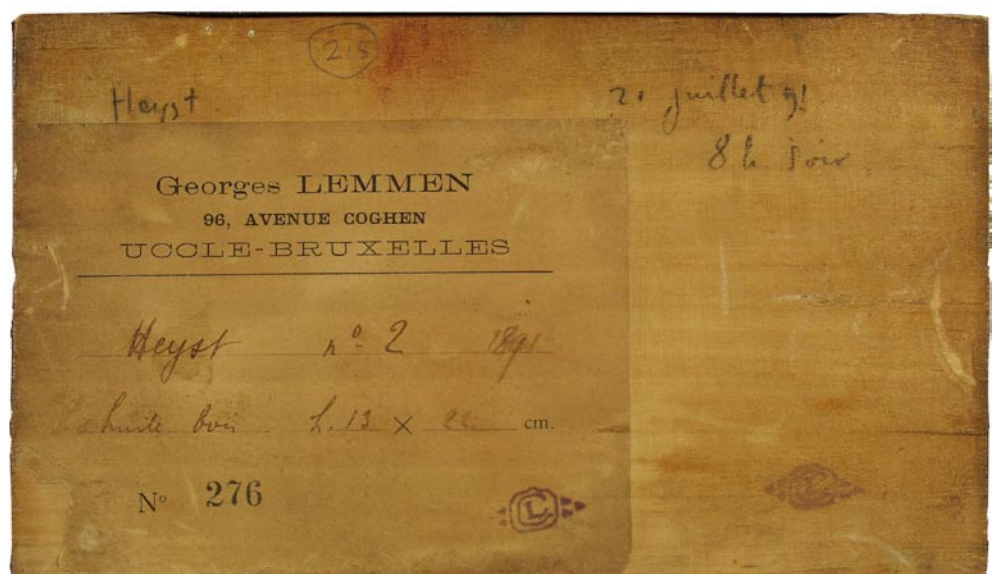 215
Heyst
juillet 91
8 h soir
Georges LEMMEN
96, AVENUE COGHEN
UCCLE-BRUXELLES
Heyst nº 2 1891
huile bois h. 13 × 22 cm.
Nº 276